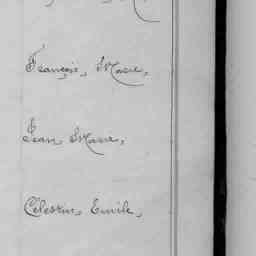 François, Marie,
Jean, Marie,
Célestin, Emile,